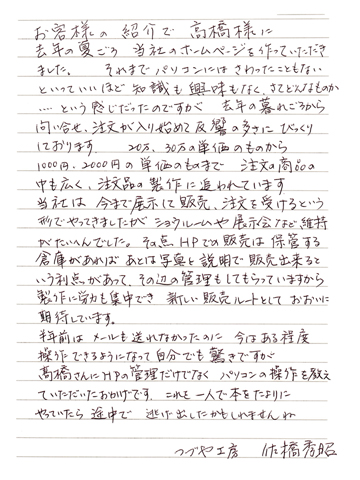 お客様の紹介で 高橋様に
去年の夏ごろ 当社のホームページを作っていただき
ました。 それまでパソコンにはさわったこともない
といっていいほど知識も興味もなく、さてどんなものか
… という感じだったのですが 去年の暮れごろから
問い合せ、注文が入り始めて反響の多さにびっくり
しております。 20万、30万の単価のものから
1000円、2000円の単価のものまで 注文の商品の
巾も広く、注文品の製作に追われています
当社は今まで展示して販売、注文を受けるという
形でやってきましたがショウルームや展示会など維持
がたいへんでした。その点HPでの販売は保管する
倉庫があればあとは写真と説明で販売出来ると
いう利点があって、その辺の管理もしてもらっていますから
製作に労力も集中でき 新しい販売ルートとして おおいに
期待しています。
半年前はメールも送れなかったのに 今はある程度
操作できるようになって自分でも驚きですが
高橋さんにHPの管理だけでなく パソコンの操作を教え
ていただいたおかげです。これを一人で本をたよりに
やっていたら 途中で 逃げ出したかもしれませんね
つづや工房 佐橋秀昭